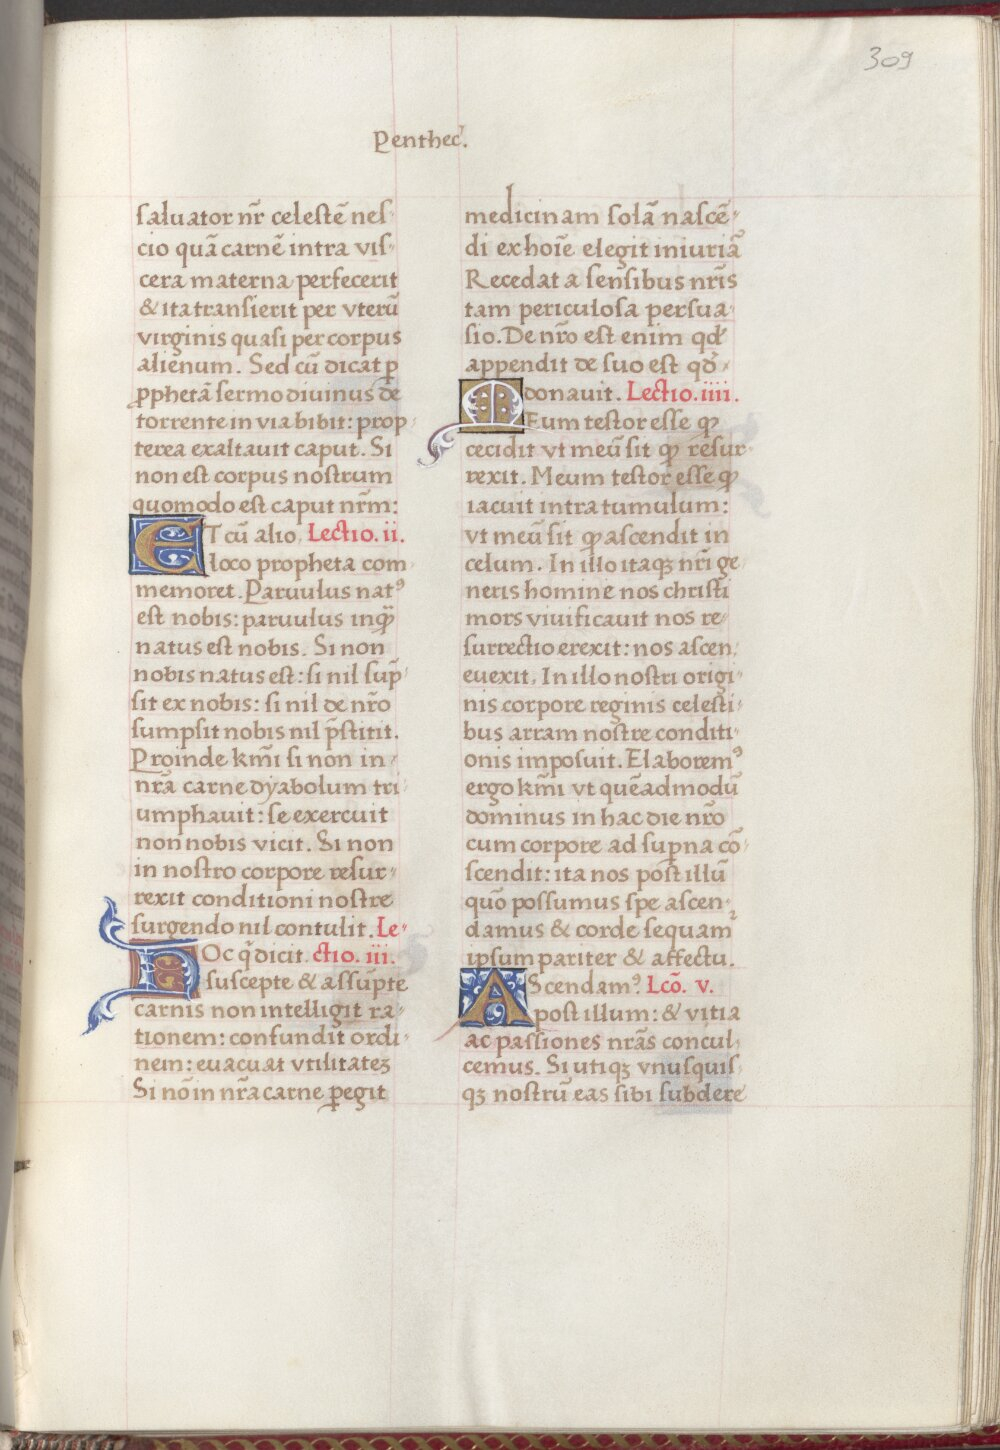 309
Penthec̃.
saluator nr̃ celestẽ nes-
cio quã carnẽ intra vis-
cera materna perfecerit
& ita transierit per vterũ
virginis quasi per corpus
alienum. Sed cũ dicat p̱
ꝓphetã sermo diuinus de
torrente in via bibit: prop-
terea exaltauit caput. Si
non est corpus nostrum
quomodo est caput nr̃m:
ET cũ alio Lectio. ii.
loco propheta com-
memoret. Paruulus natꝰ
est nobis: paruulus inqͣ̃
natus est nobis. Si non
nobis natus est: si nil sup̃-
sit ex nobis: si nil de nr̃o
sumpsit nobis nil p̃stitit.
Proinde km̃i si non in
nr̃a carne dyabolum tri-
umphauit: se exercuit
non nobis vicit. Si non
in nostro corpore resur-
rexit conditioni nostre
surgendo nil contulit. Le-
HOc q̃ dicit ctio. iii.
suscepte & assũpte
carnis non intelligit ra-
tionem: confundit ordi-
nem: euacuat vtilitateꝫ
Si nõ in nr̃a carne ꝑegit
medicinam solã nascẽ-
di ex hoĩe elegit iniuriã
Recedat a sensibus nr̃is
tam periculosa persua-
sio. De nr̃o est enim qđ
appendit de suo est qđ
donauit. Lectio. iiii.
MEum testor esse ꝙ
cecidit vt meũ sit ꝙ resur-
rexit. Meum testor esse ꝙ
iacuit intra tumulum:
vt meũ sit ꝙ ascendit in
celum. In illo itaqꝫ nr̃i ge-
neris homine nos christi
mors viuificauit nos re-
surrectio erexit: nos ascen.
euexit. In illo nostri origi-
nis corpore reginis celesti-
bus arram nostre conditi-
onis imposuit. Elaboremꝰ
ergo km̃i vt quẽadmodũ
dominus in hac die nr̃o
cum corpore ad suꝑna cõ-
scendit: ita nos post illũ
quõ possumus spe ascen-
damus & corde sequam²
ipsum pariter & affectu.
AScendamꝰ Lcõ. v.
post illum: & vitia
ac passiones nr̃as concul-
cemus. Si utiqꝫ vnusquis-
qꝫ nostrũ eas sibi subdere